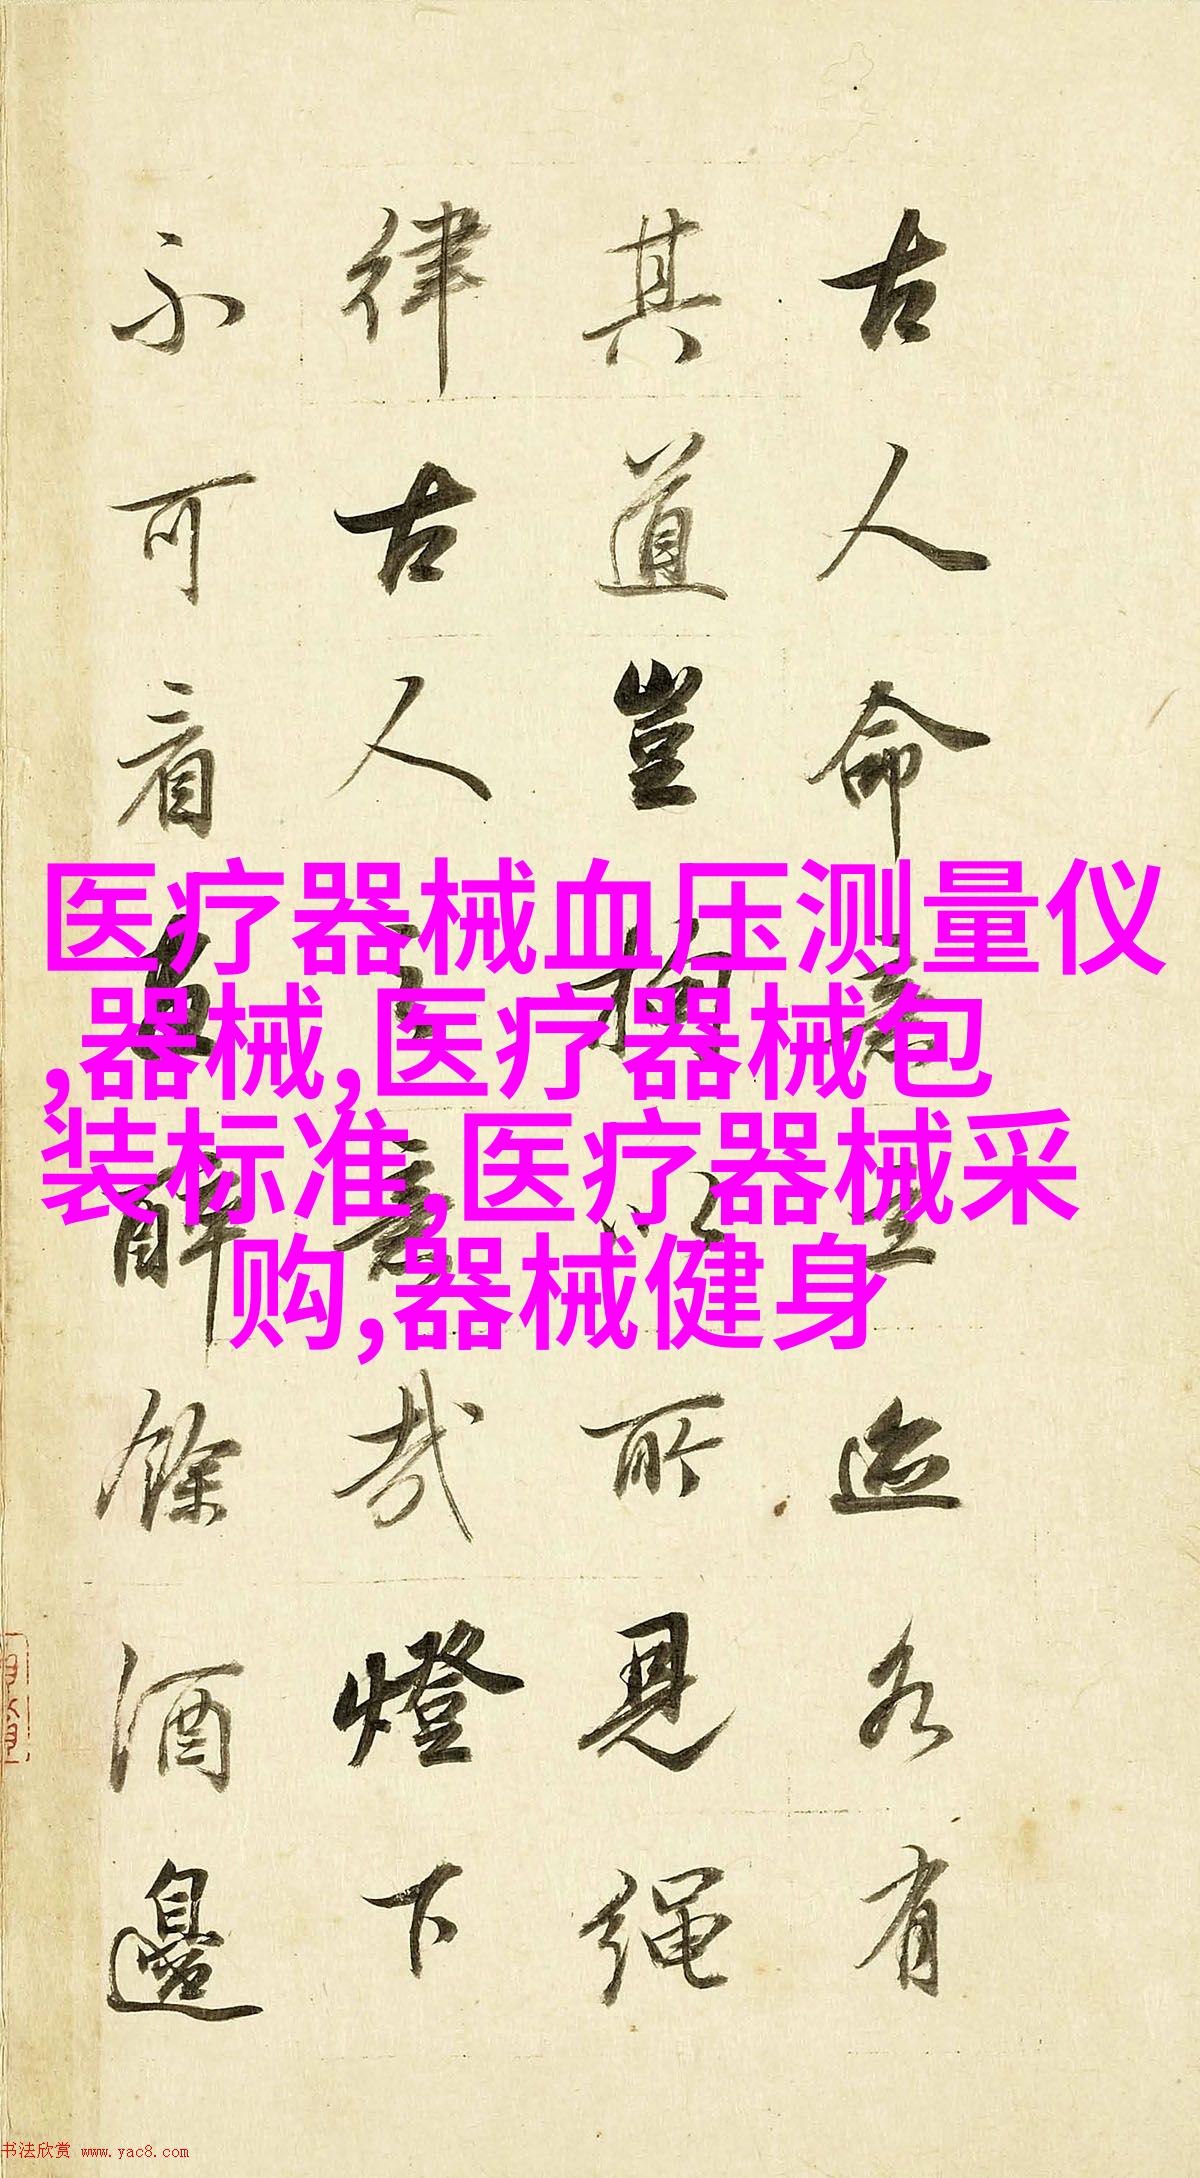 古人命意立迹各有
其道豈拘以所見繩
律古人之意哉燈下
不可看畫醉餘酒邊
医疗器械血压测量仪
,器械,医疗器械包
装标准,医疗器械采
购,器械健身
书法欣赏 www.yac8.com